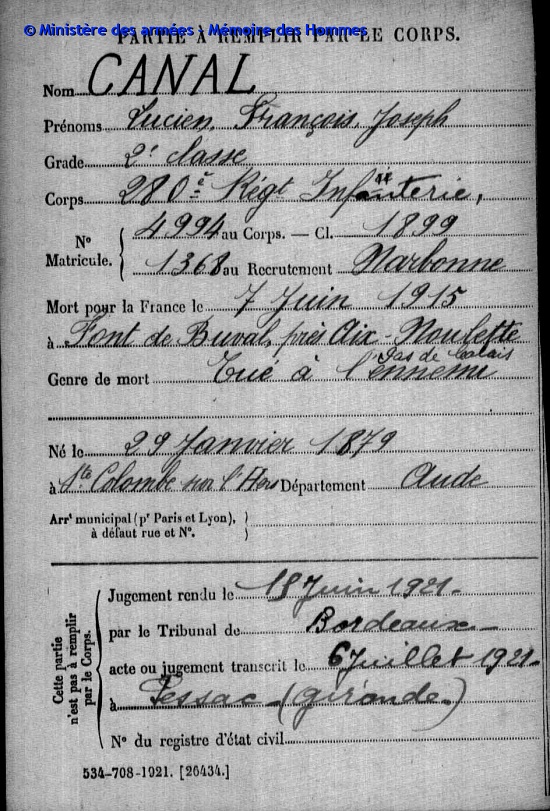 © Ministère des armées - Mémoire des Hommes
PARTIE À REMPLIR PAR LE CORPS.
Nom CANAL
Prénoms Lucien, François, Joseph
Grade 2e classe
Corps 280e Régt Infanterie,
N° Matricule. { 4994 au Corps. — Cl. 1899
1368 au Recrutement Narbonne
Mort pour la France le 7 Juin 1915
à Font de Buval, près Aix-Noulette
Pas de Calais
Genre de mort Tué à l'ennemi
Né le 29 Janvier 1879
à Ste Colombe sur l'Hers Département Aude
Arrt municipal (pr Paris et Lyon), à défaut rue et N°. }
Cette partie n'est pas à remplir par le Corps. {
Jugement rendu le 18 Juin 1921-
par le Tribunal de Bordeaux-
acte ou jugement transcrit le 6 Juillet 1921-
à Pessac - (gironde.)
N° du registre d'état civil
534-708-1921. [26434.]